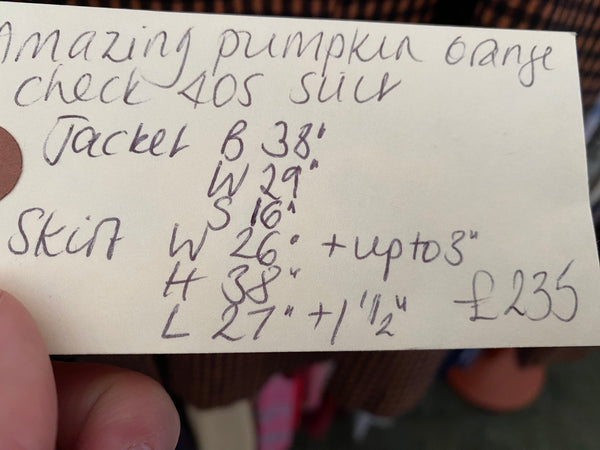 Amazing pumpkin orange
check 40s suit
Jacket B 38"
W 29"
S 16"
Skirt W 26" + up to 3"
H 38"
L 27" + 1 1/2"
£235